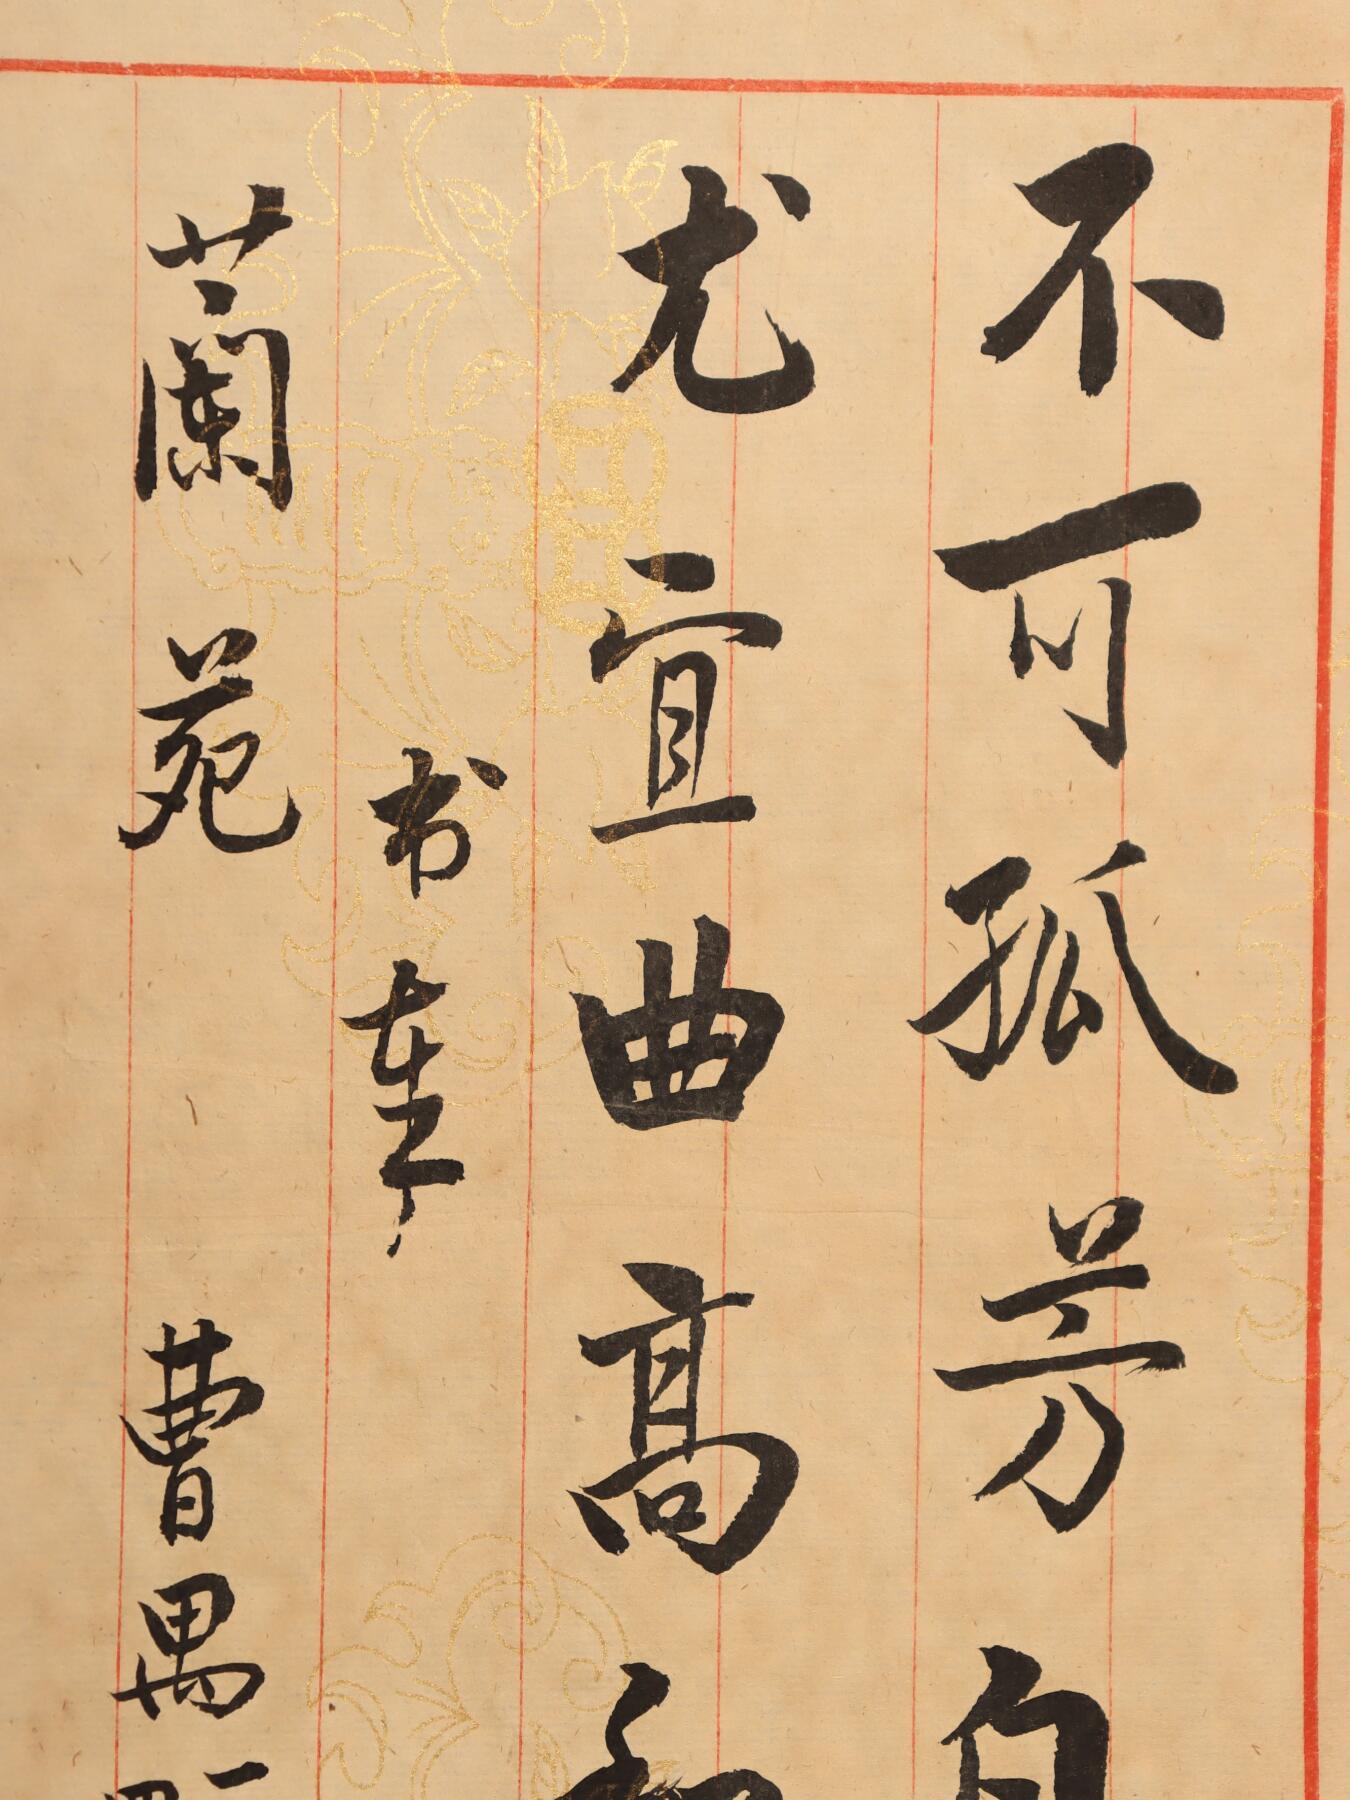 不可孤芳自
尤宜曲高和
书奉
蘭苑 曹禺